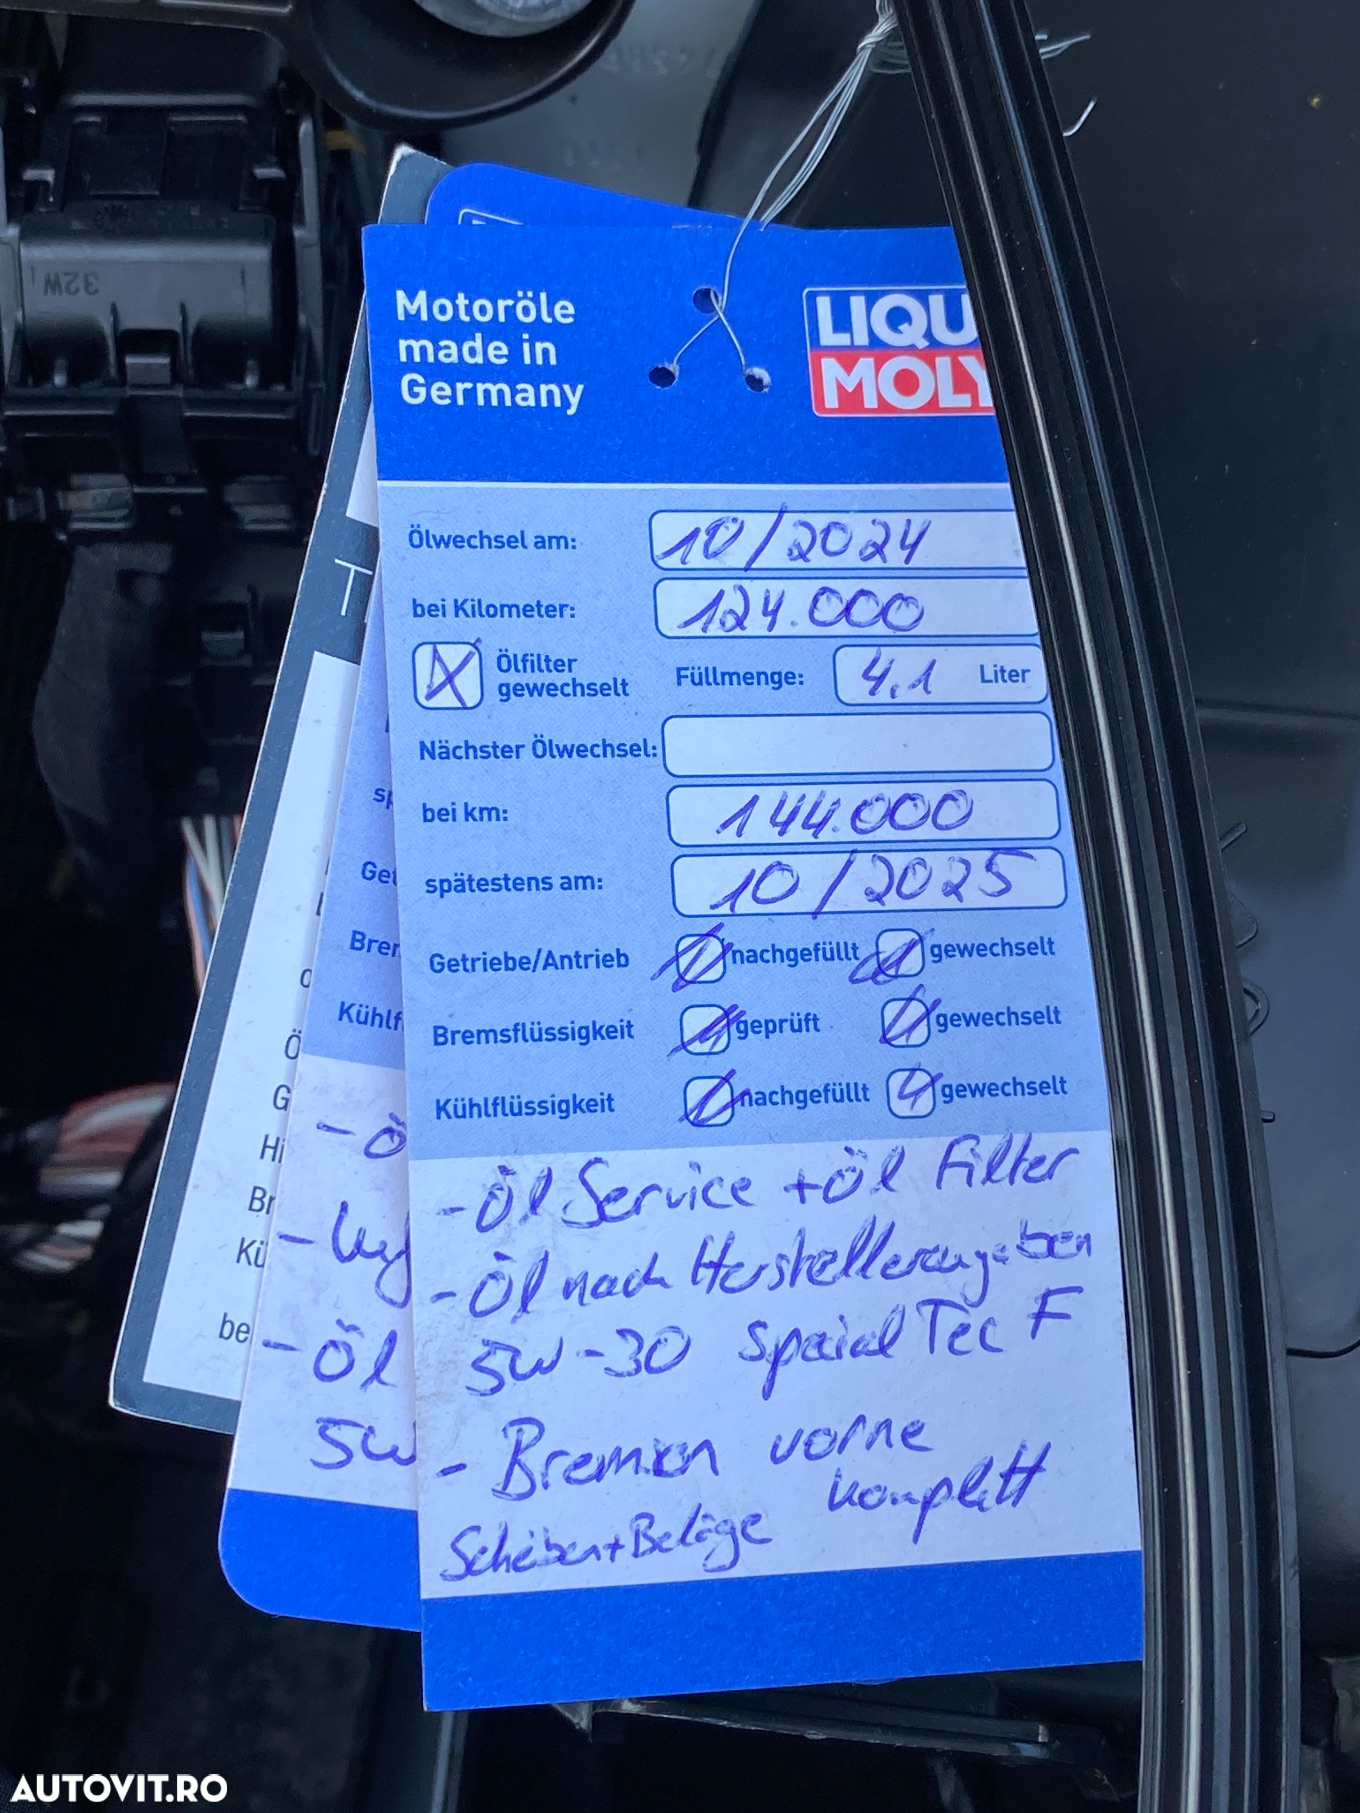 Motoröle
made in
Germany
LIQU
MOLY
32W
Ölwechsel am: 10/2024
bei Kilometer: 124.000
Ölfilter
gewechselt
Füllmenge: 4,1 Liter
Nächster Ölwechsel:
bei km: 144.000
spätestens am: 10/2025
Getriebe/Antrieb nachgefüllt gewechselt
Bremsflüssigkeit geprüft gewechselt
Kühlflüssigkeit nachgefüllt gewechselt
- Öl Service + Öl Filter
- Öl nach Herstellerangeben
5W-30 Special Tec F
- Bremsen vorne
komplett
Scheiben + Beläge
T
sp
Get
Brem
Kühlf
- Ö
- Öl
5W
Ö
G
Hi
Br
Kü
be
AUTOVIT.RO